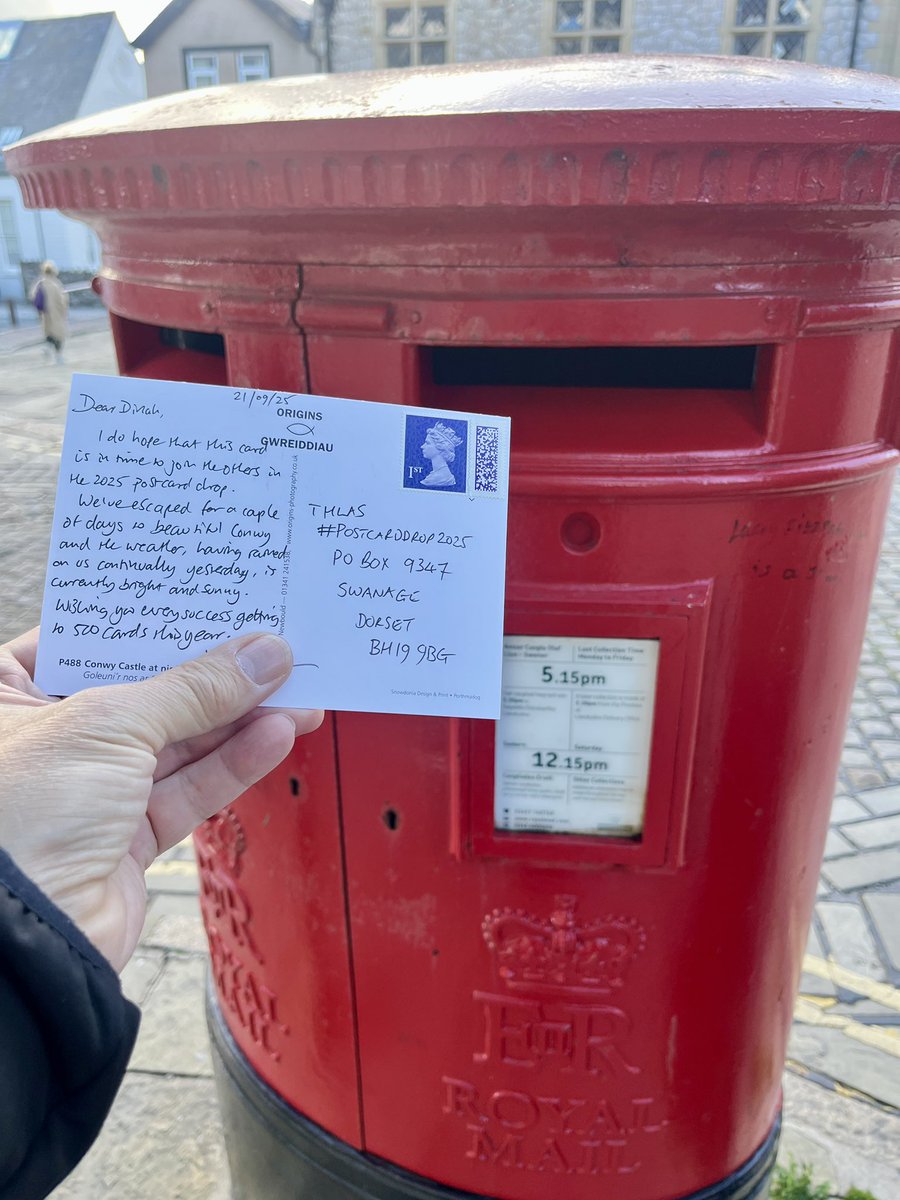 21/09/25
ORIGINS
GWREIDDIAU
Dear Dinah,
I do hope that this card
is in time to join the others in
the 2025 postcard drop.
We've escaped for a couple
of days to beautiful Conwy
and the weather, having rained
on us continually yesterday, is
currently bright and sunny.
Wishing you every success getting
to 500 cards this year.
P488 Conwy Castle at
Goleuni'r nos
01341 241536
www.origins-photography.co.uk
1ST
THLAS
#POSTCARDDROP2025
PO BOX 9347
SWANAGE
DORSET
BH19 9BG
Snowdonia Design & Print • Porthmadog
Last Collection Time
Monday to Friday
5.15pm
Saturday
12.15pm
Other Collections
is a
EIIR
ROYAL
MAIL
R
ROYAL
MAIL